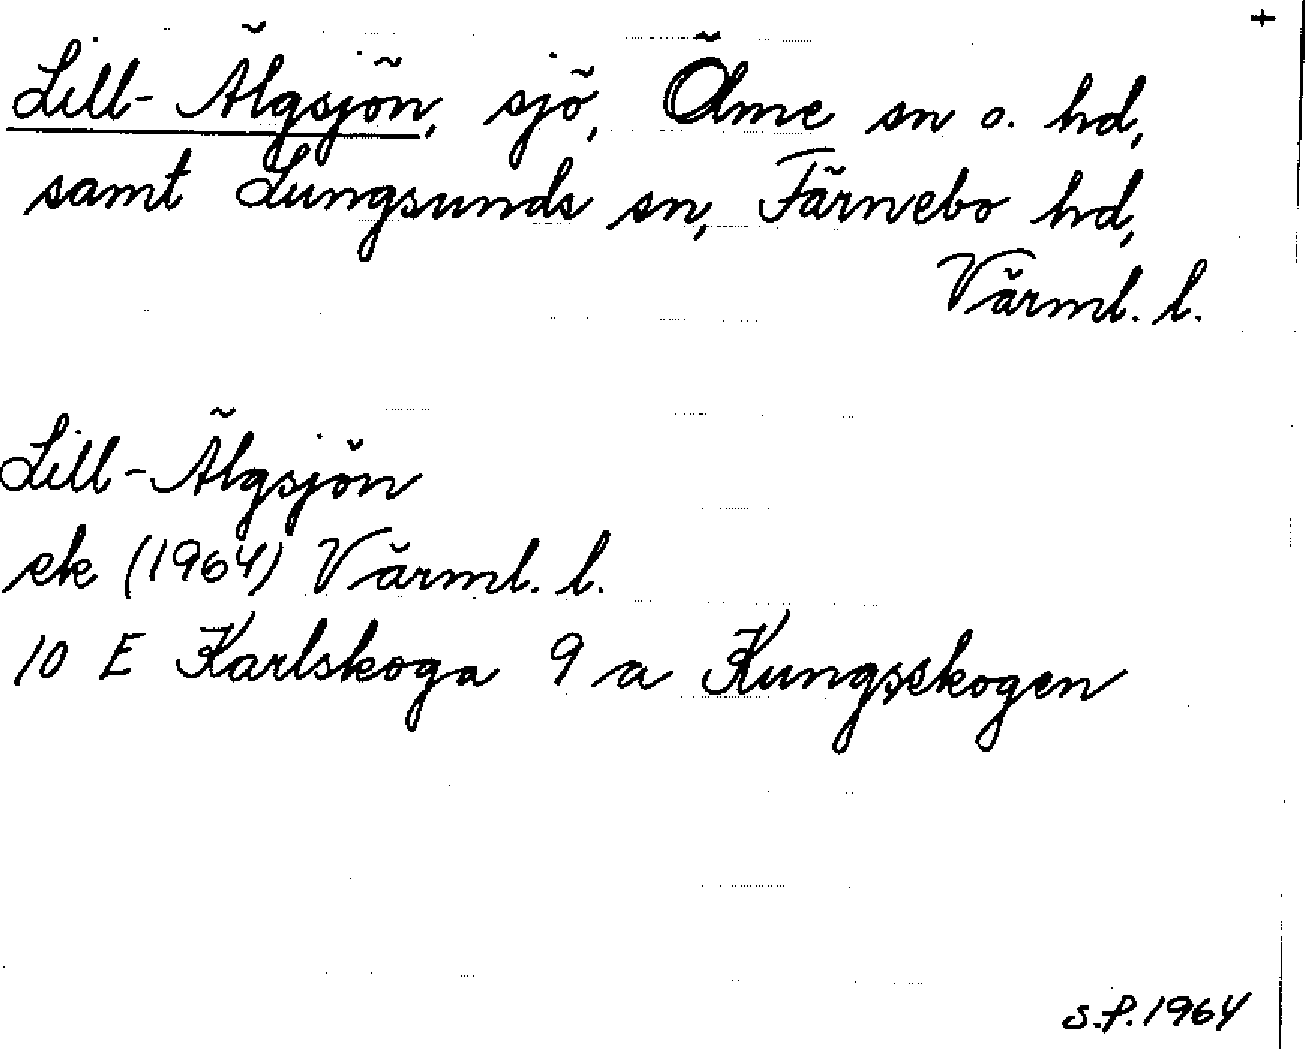 +
Lill-Älgsjön, sjö, Ölme sn o. hd,
samt Lungsunds sn, Färnebo hd,
Värml. l.
Lill-Älgsjön
ek (1964) Värml. l.
10 E Karlskoga 9 a Kungsskogen
S.P. 1964